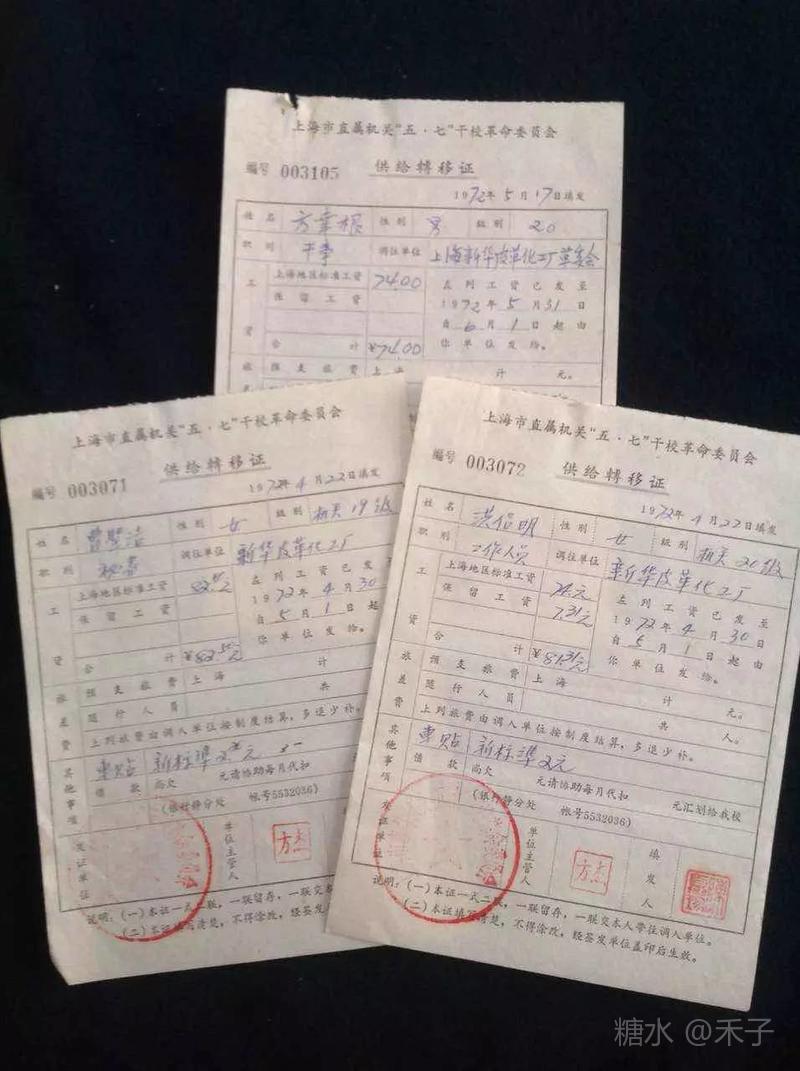 上海市直属机关“五·七”干校革命委员会
编号 003105 供给转移证
1972年5月17日填发
姓名 方章根 性别 男 级别 20
职别 干事 调往单位 上海新华皮革化工厂革委会
工资
上海地区标准工资 74.00
保留工资
合计 ¥74.00
左列工资已发至
1972年5月31日
自6月1日起由
你单位发给。
旅 预支旅费 上海 计 元。
上海市直属机关“五·七”干校革命委员会
编号 003071 供给转移证
1972年4月22日填发
姓名 性别 女 级别 机关19级
职别 秘书 调往单位 新华皮革化工厂
工资
上海地区标准工资
保留工资
合计
左列工资已发至
1972年4月30
自5月1日起
你单位发给。
旅差费
预支旅费 上海 计
随行人员 共
上列旅费由调入单位按制度结算，多退少补。
其他事项
车贴 新标准2元
借款 尚欠 元请协助每月代扣
(银行静分处 帐号5532036)
发证单位
单位主管人 方杰
说明：(一)本证一式二联，一联留存，一联交本人带往调入
(二)本证填写清楚，不得涂改，经签发
上海市直属机关“五·七”干校革命委员会
编号 003072 供给转移证
1972年4月22日填发
姓名 洪信明 性别 女 级别 机关20级
职别 工作人员 调往单位 新华皮革化工厂
工资
上海地区标准工资 74.元
保留工资 7.31元
合计 ¥81.31元
左列工资已发至
1972年4月30日
自5月1日起由
你单位发给。
旅差费
预支旅费 上海 计 元。
随行人员 共 人。
上列旅费由调入单位按制度结算，多退少补。
其他事项
车贴 新标准2元
借款 尚欠 元请协助每月代扣 元汇划给我校
(银行静分处 帐号5532036)
发证单位
单位主管人 方杰
填发人
说明：(一)本证一式二联，一联留存，一联交本人带往调入单位。
(二)本证填写清楚，不得涂改，经签发单位盖印后生效。
糖水 @禾子